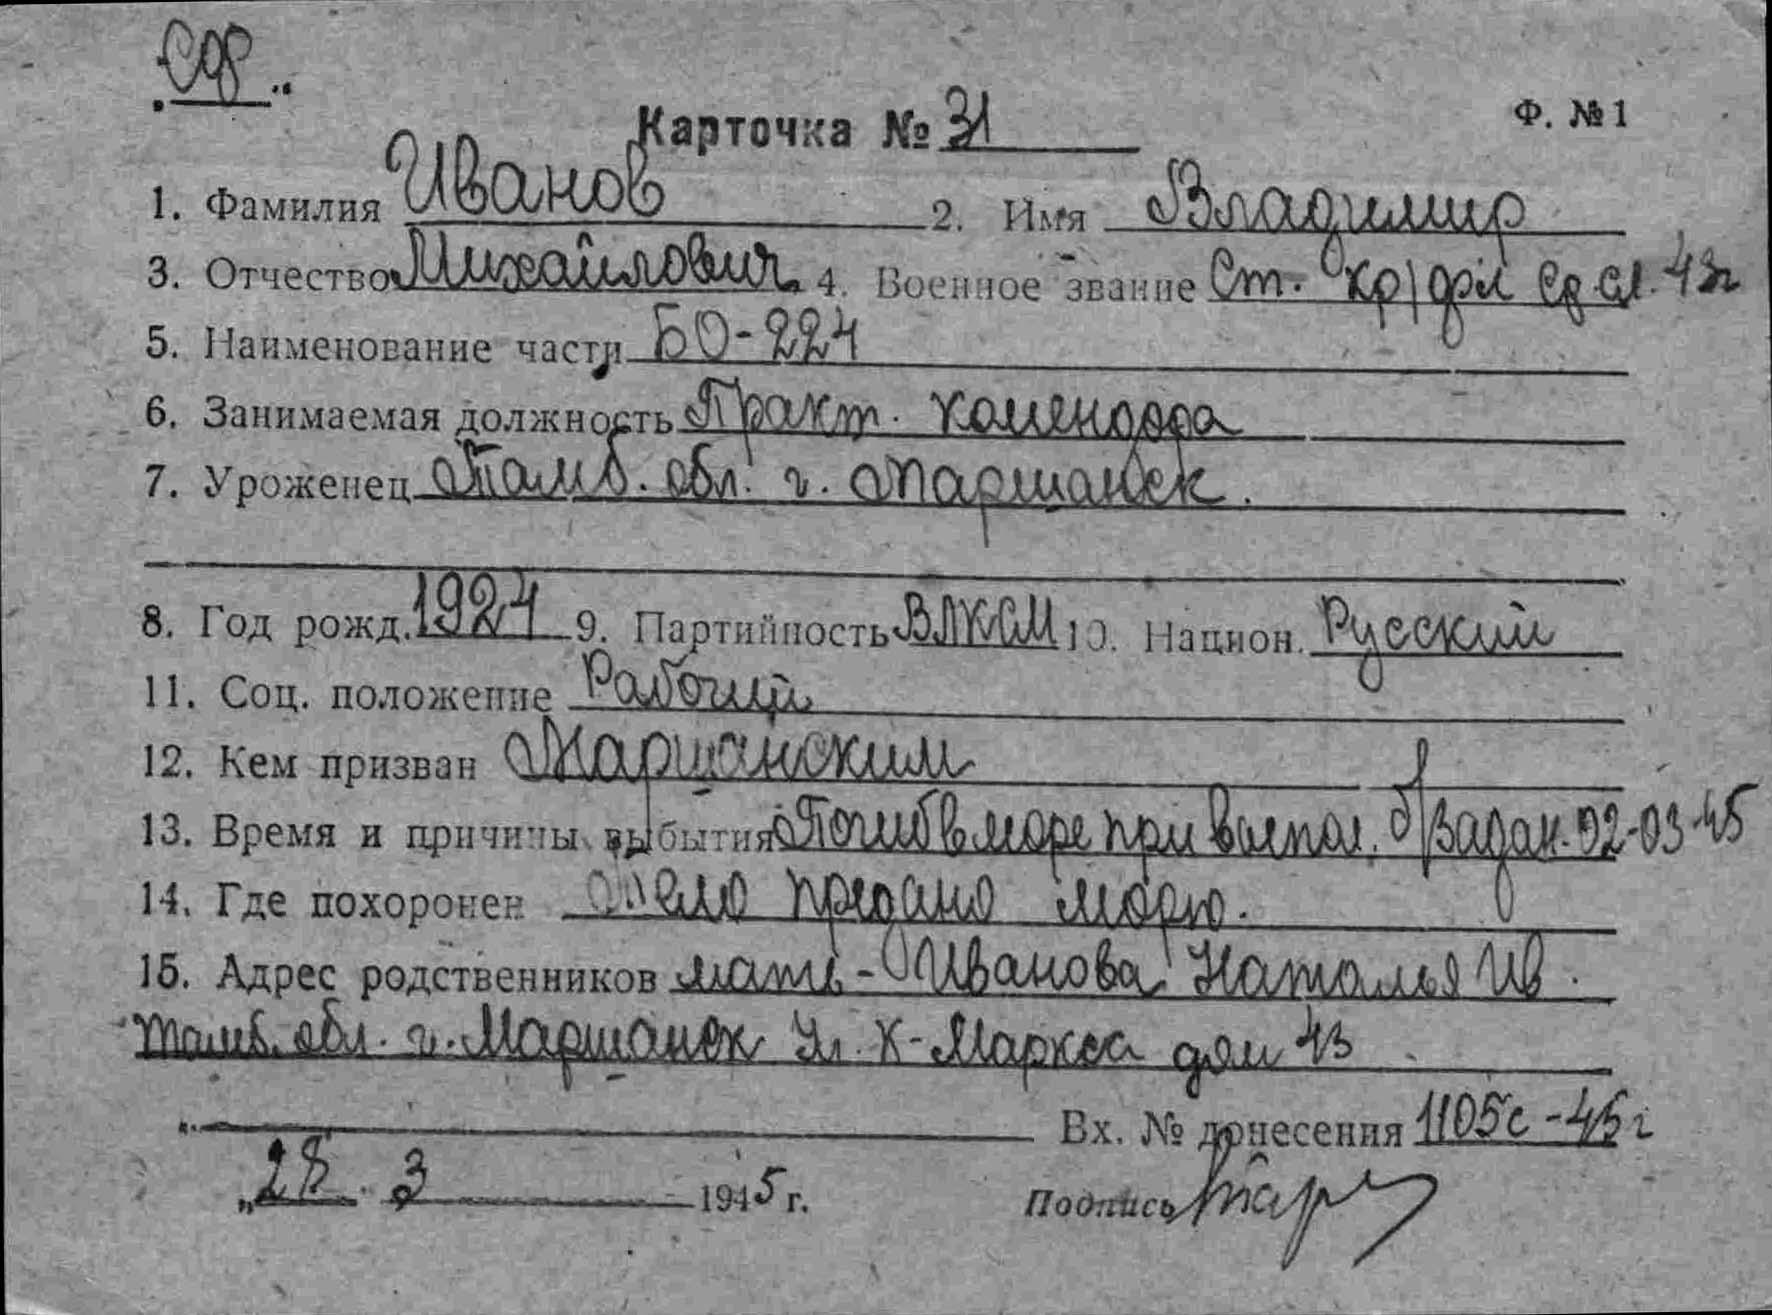 Ф. № 1
Карточка № 31
1. Фамилия Иванов 2. Имя Владимир
3. Отчество Михайлович 4. Военное звание Ст. кр/фл ср. сл. 43г
5. Наименование части БО-224
6. Занимаемая должность Практ. комендора
7. Уроженец Тамб. обл. г. Маршанск.
8. Год рожд. 1924 9. Партийность ВЛКСМ 10. Национ. Русский
11. Соц. положение Рабочий
12. Кем призван Маршанским
13. Время и причины выбытия Погиб в море при выпол. б/задан. 02-03-45
14. Где похоронен Тело предано морю.
15. Адрес родственников мать - Иванова Наталья Ив.
Тамб. обл. г. Маршанск ул. К-Маркса дом 43
Вх. № донесения 1105с-45г
„28. 3 1945 г. Подпись